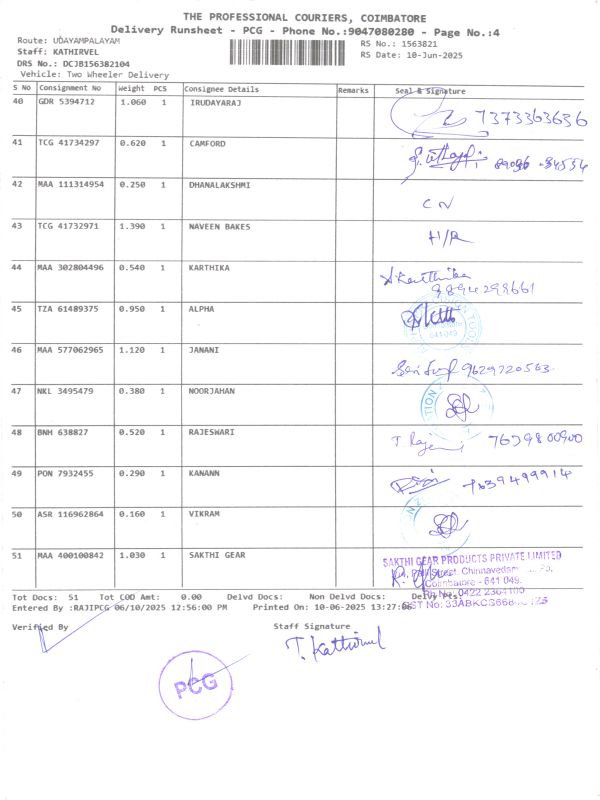 THE PROFESSIONAL COURIERS, COIMBATORE
Delivery Runsheet - PCG - Phone No.:9047080280 - Page No.:4
Route: UDAYAMPALAYAM
RS No.: 1563821
Staff: KATHIRVEL
RS Date: 10-Jun-2025
DRS No.: DCJB156382104
Vehicle: Two Wheeler Delivery
S No Consignment No Weight PCS Consignee Details Remarks Seal & Signature
40 GDR 5394712 1.060 1 IRUDAYARAJ 7373363636
41 TCG 41734297 0.620 1 CAMFORD
42 MAA 111314954 0.250 1 DHANALAKSHMI CN
43 TCG 41732971 1.390 1 NAVEEN BAKES H/R
44 MAA 302804496 0.540 1 KARTHIKA A.Karthika
9894298661
45 TZA 61489375 0.950 1 ALPHA
641 049
46 MAA 577062965 1.120 1 JANANI 9629720563
47 NKL 3495479 0.380 1 NOORJAHAN
48 BNH 638827 0.520 1 RAJESWARI T Raje 7639800900
49 PON 7932455 0.290 1 KANANN 7639499914
50 ASR 116962864 0.160 1 VIKRAM
51 MAA 400100842 1.030 1 SAKTHI GEAR
SAKTHI GEAR PRODUCTS PRIVATE LIMITED
Street, Chinnavedam
Coimbatore - 641 049.
Ph No: 0422 2304100
Tot Docs: 51 Tot COD Amt: 0.00 Delvd Docs: Non Delvd Docs: Delvy Pts:
Entered By :RAJIPCG 06/10/2025 12:56:00 PM Printed On: 10-06-2025 13:27:06
GST No: 33ABKCS66
Verified By
Staff Signature
T. Kathirvel
PCG